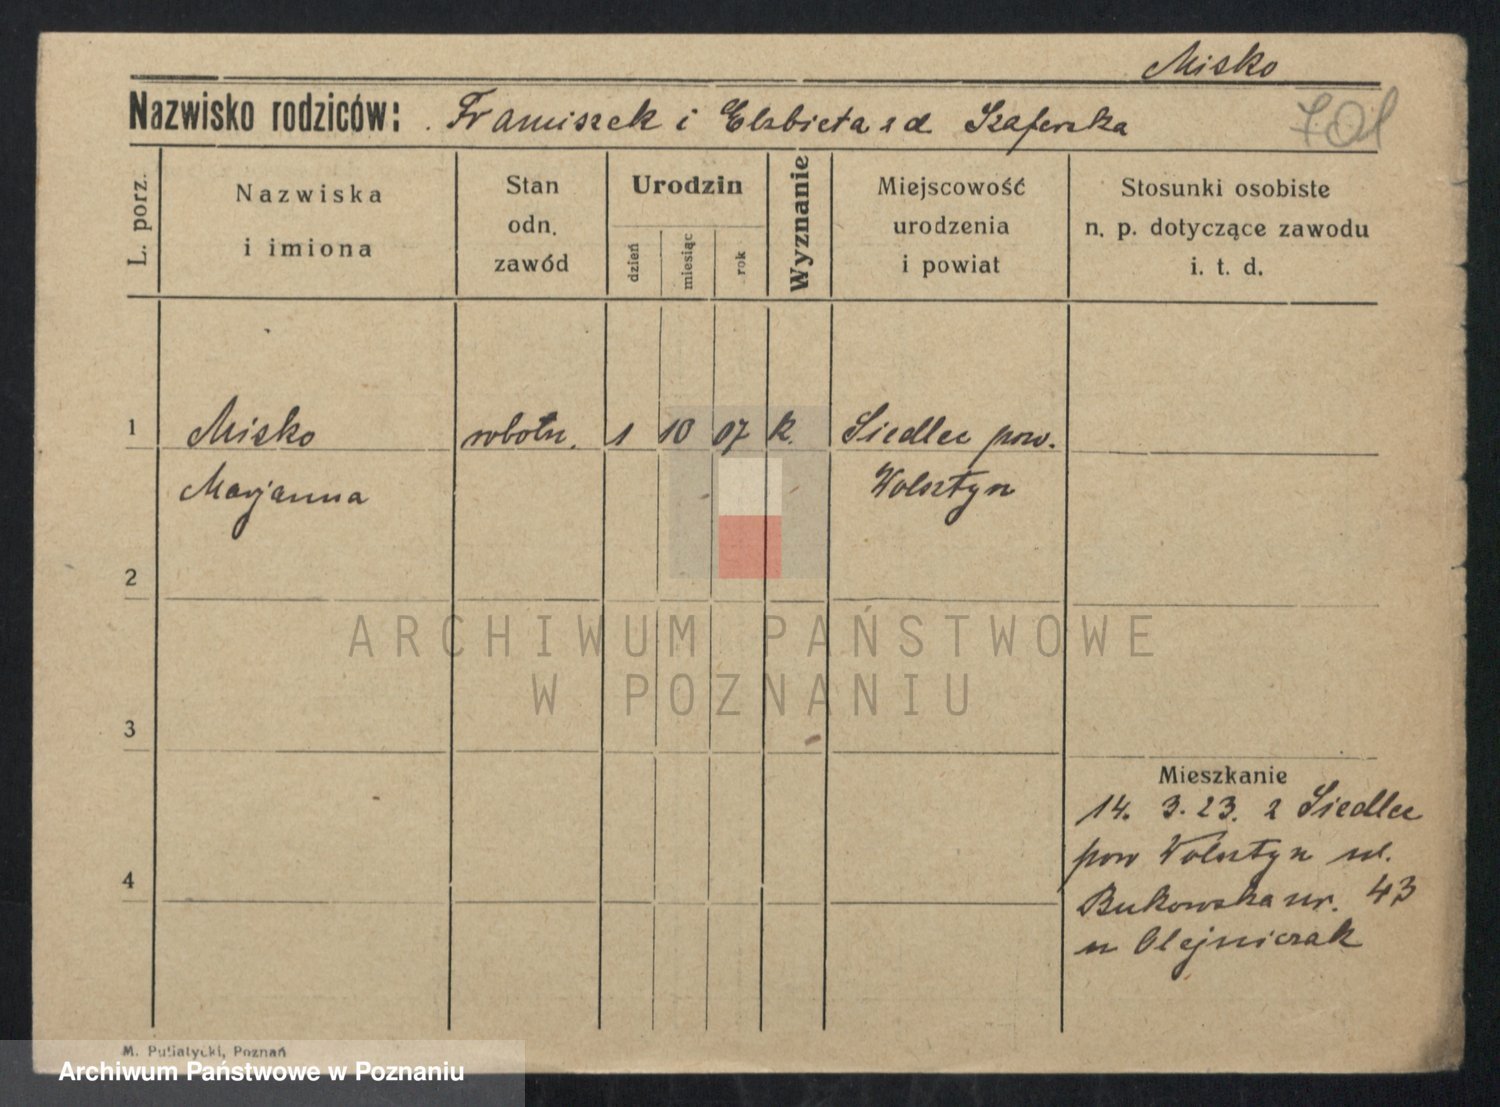 Misko
Nazwisko rodziców: Franciszek i Elżbieta zd Szaferska
701
L. porz.
Nazwiska
i imiona
Stan
odn.
zawód
Urodzin
dzień
miesiąc
rok
Wyznanie
Miejscowość
urodzenia
i powiat
Stosunki osobiste
n. p. dotyczące zawodu
i. t. d.
1 Misko robotn. 1 10 07 k. Siedlec pow.
Marjanna Wolsztyn
2
3
Mieszkanie
14. 3. 23. z Siedlec
pow Wolsztyn ul.
4
Bukowska nr. 43
u Olejniczak
ARCHIWUM PAŃSTWOWE
W POZNANIU
M. Putiatycki, Poznań
Archiwum Państwowe w Poznaniu